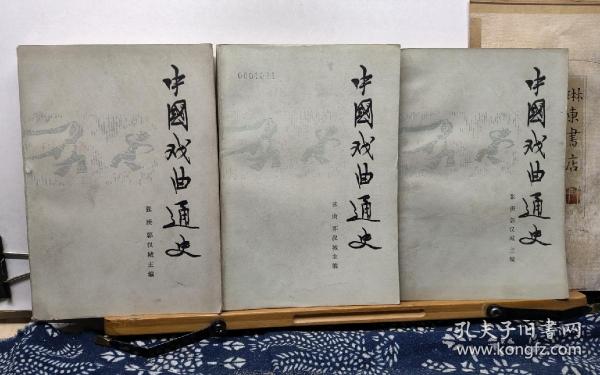 中國戏曲通史
張庚 郭汉城主编
0001011
中國戏曲通史
張庚 郭汉城主编
中國戏曲通史
張庚 郭汉城主编
林東書店
孔夫子旧書网
www.kongfz.com